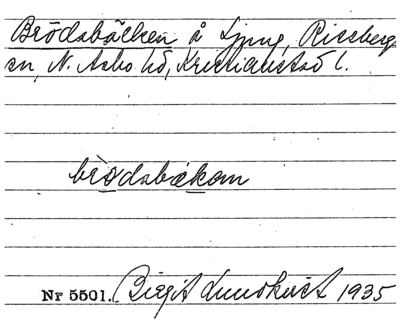 Brödabäcken å Ljung, Risseberg
sn, N. Asbo hd, Kristianstad l.
brödabäkam
Nr 5501. Birgit Lundkvist 1935